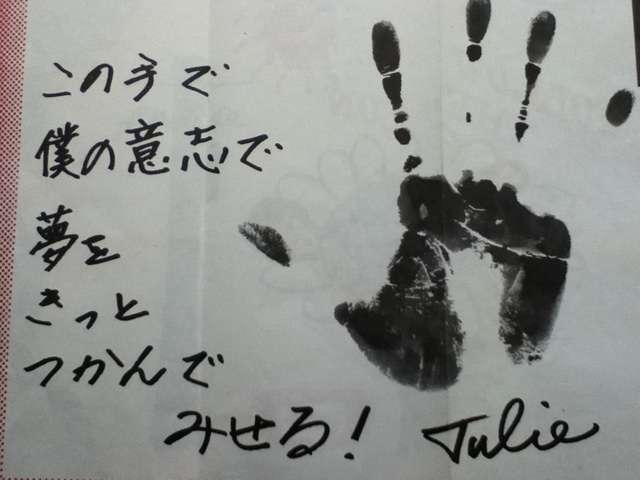 この手で
僕の意志で
夢を
きっと
つかんで
みせる!
Julie